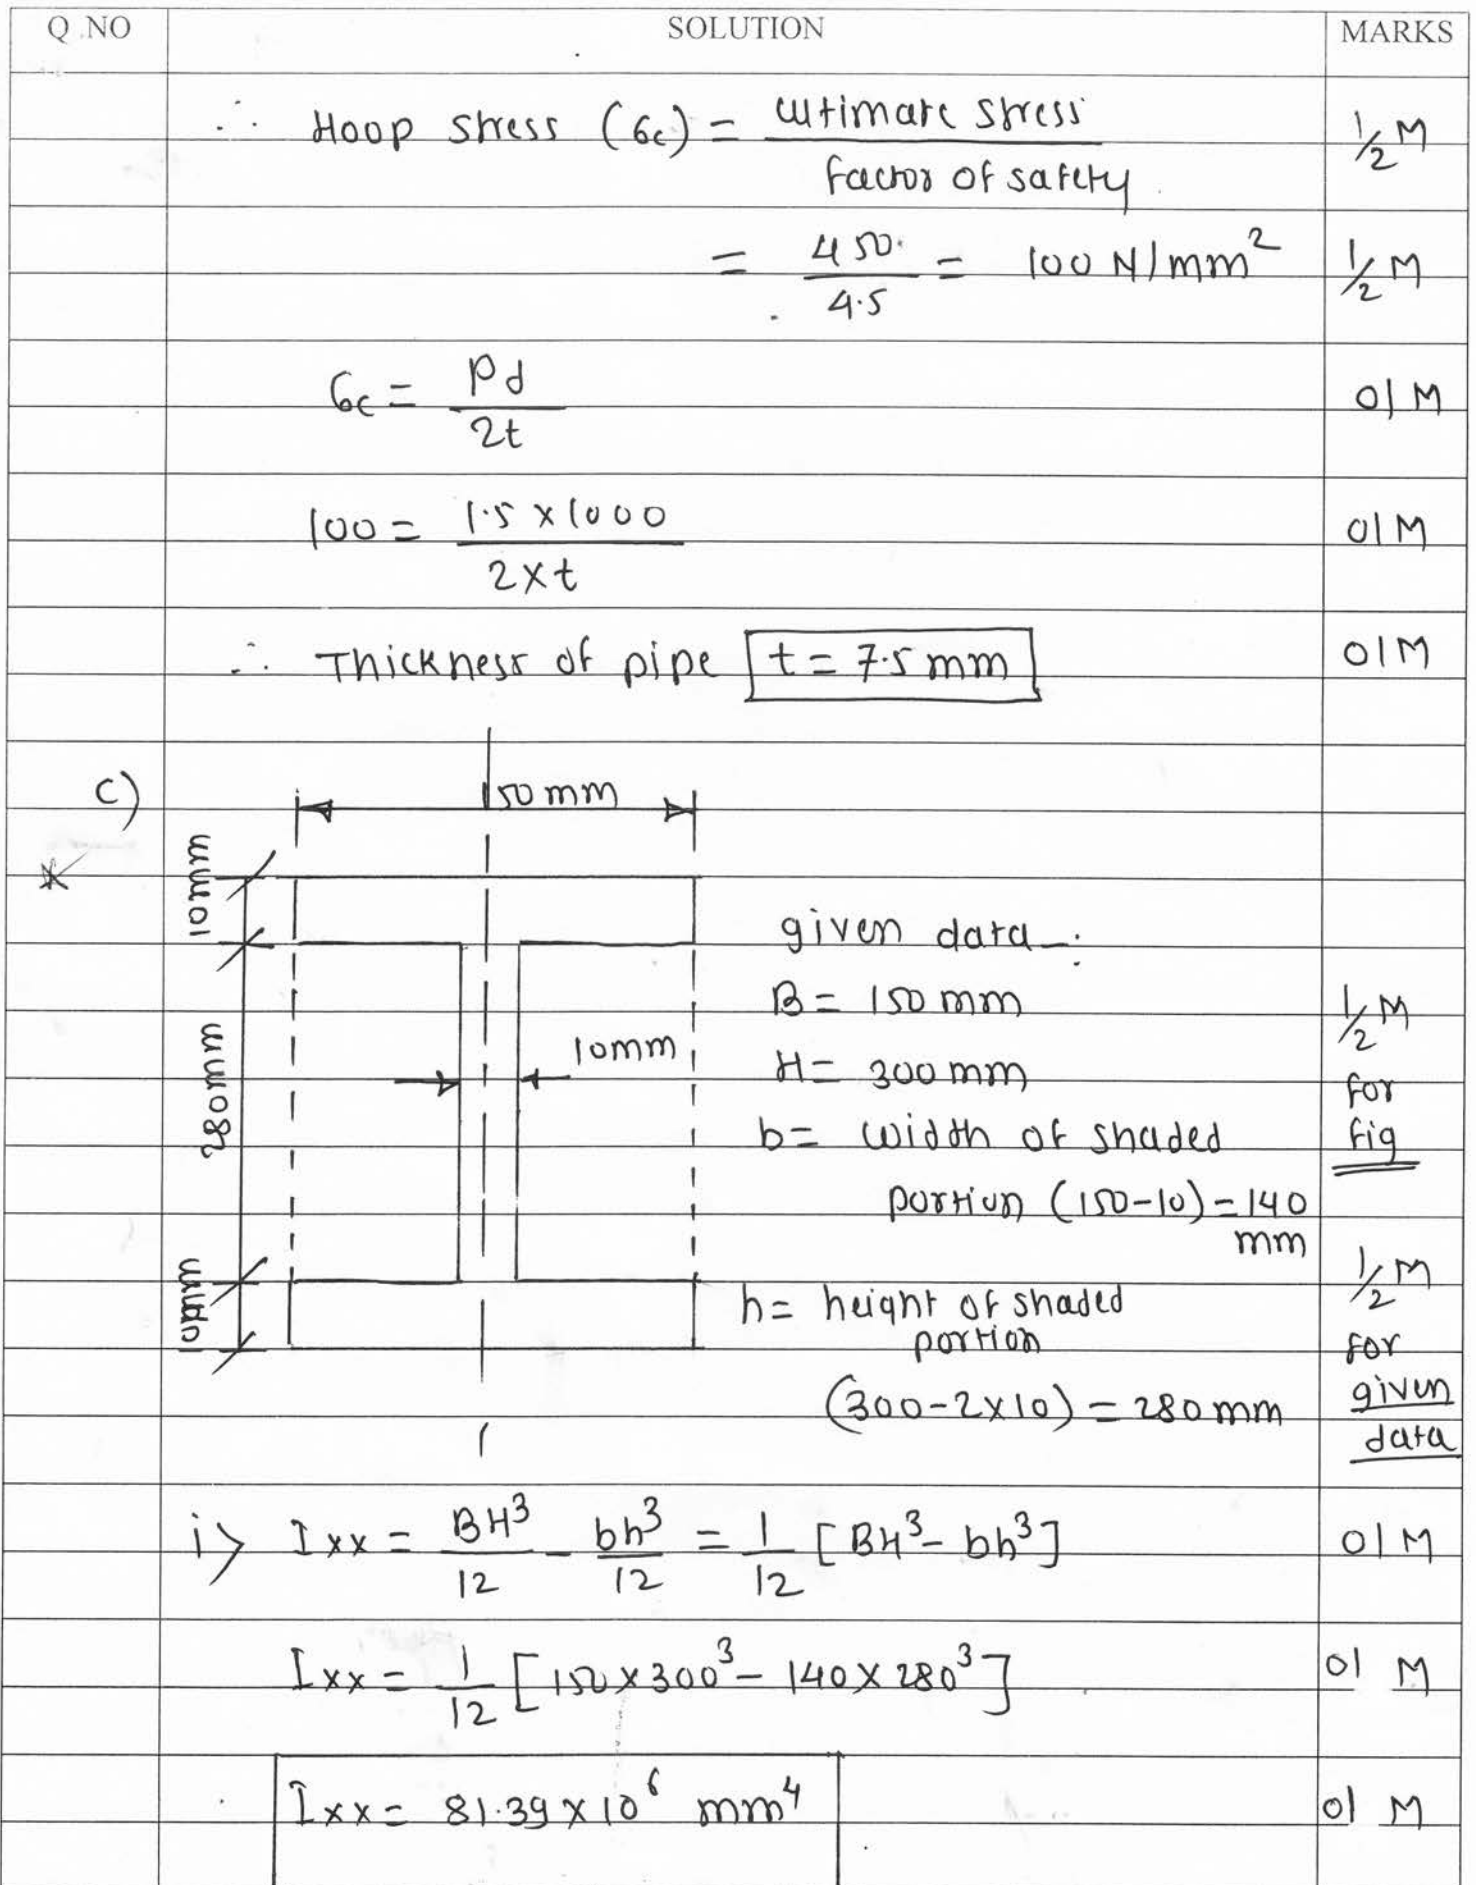 Q.NO SOLUTION MARKS
∴ Hoop stress (σc) = ultimate stress / factor of safety. 1/2 M
= 450 / 4.5 = 100 N/mm² 1/2 M
σc = Pd / 2t 01 M
100 = 1.5 × 1000 / 2 × t 01 M
∴ Thickness of pipe t = 7.5 mm 01 M
c)
150 mm
10mm
given data :
B = 150 mm
1/2 M
280mm
10mm
H = 300 mm
for
b = width of shaded
fig
portion (150-10) = 140
mm
1/2 M
10mm
h = height of shaded
portion
for
(300-2×10) = 280 mm
given
data
i> Ixx = BH³/12 - bh³/12 = 1/12 [BH³ - bh³] 01 M
Ixx = 1/12 [150 × 300³ - 140 × 280³] 01 M
Ixx = 81.39 × 10⁶ mm⁴ 01 M